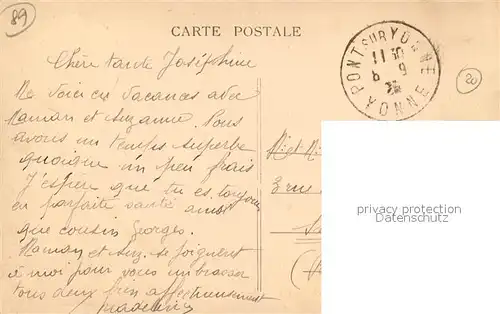 89
CARTE POSTALE
PONT SUR YONNE
11 30
6 9
YONNE
20
Chère tante Joséphine
Me voici en vacances avec
Maman et Suzanne. Nous
avons un temps superbe
quoique un peu frais
J'espère que tu es toujours
en parfaite santé ainsi
que cousin Georges.
Maman et Suz. se joignent
à moi pour vous embrasser
tous deux bien affectueusement
Madeleine
M et M
3 rue
privacy protection
Datenschutz